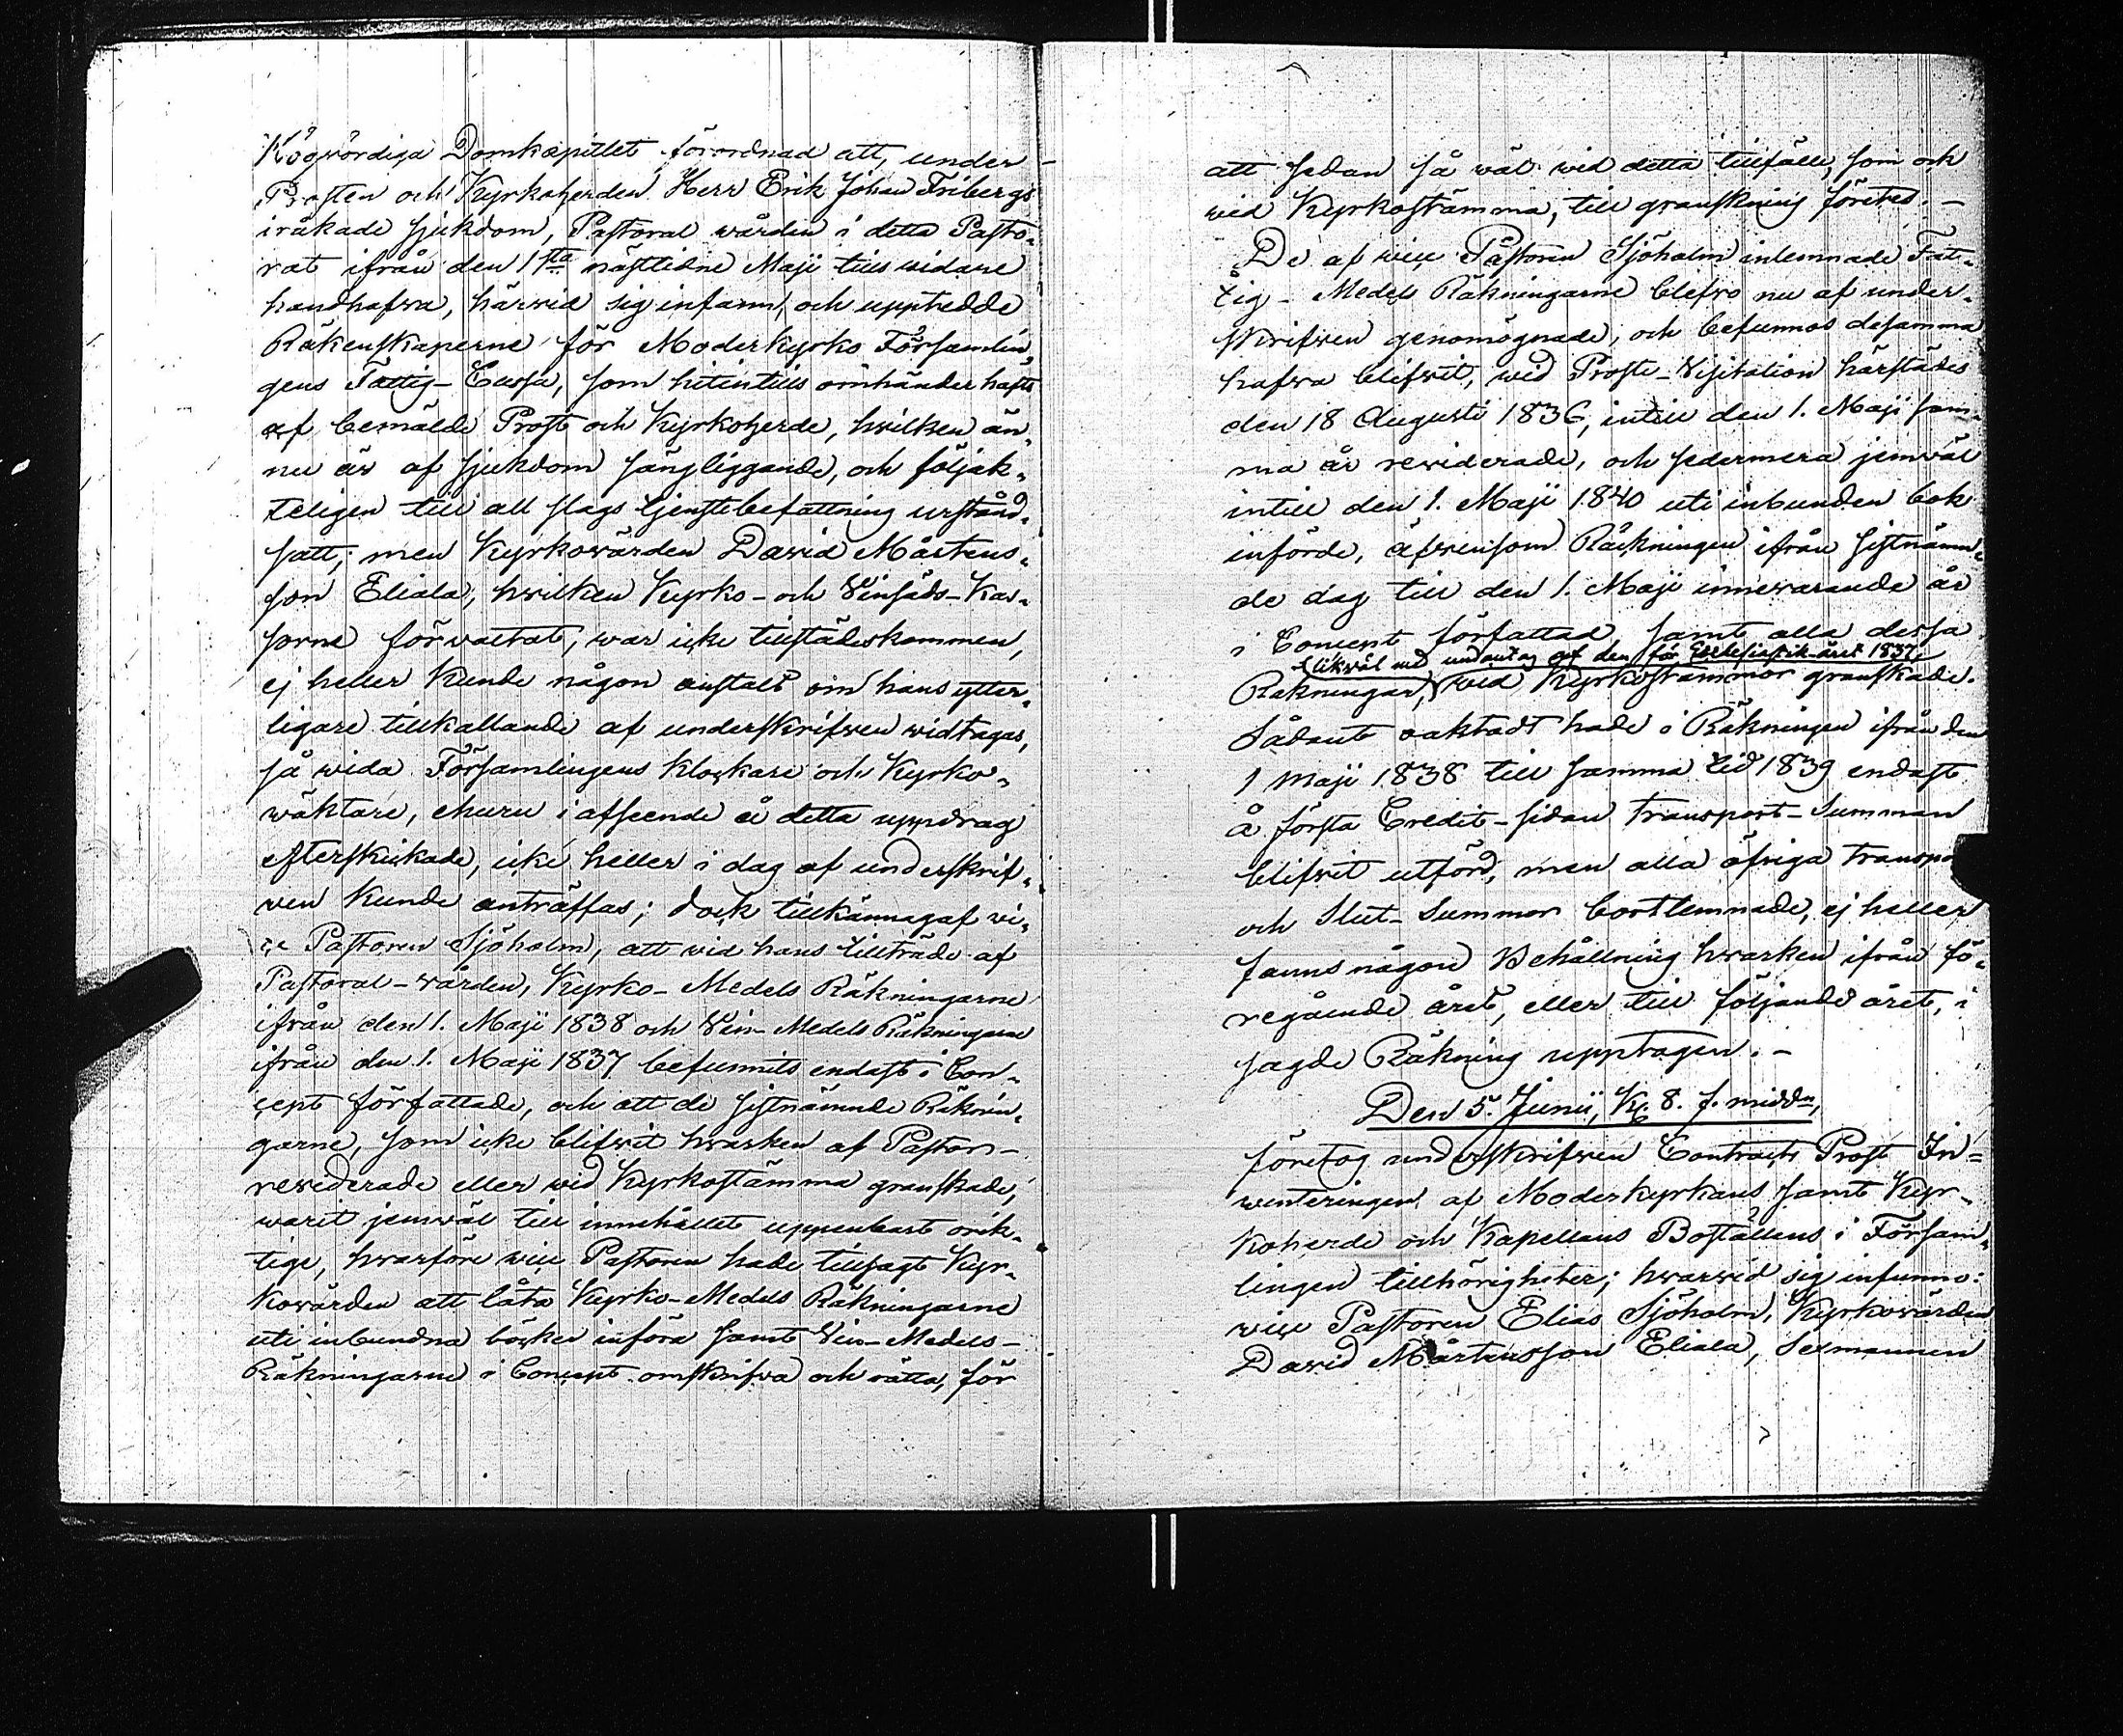 Högwördiga Domkapitlet förordnad att, under
Prosten och Kyrkoherden Herr Erik Johan Fribergs
iråkade sjukdom, Pastoral wården i detta Pasto-
rat ifrån den 1sta nästledne Maji tills widare
handhafwa, härwid sig infann, och uppwedde
Räkenskaperne för Moderkyrko Församlin-
gens Fattig-Cassa, som hitintills omhänder hafts
af bemälde Prost och Kyrkoherde, hwilken än-
nu är af sjukdom sängliggande, och följak-
teligen till all slags tjenstebefattning urstånd-
satt; men Kyrkowärden Dawid Mårtens-
son Eliala, hwilken Kyrko- och Winsäds-Kas-
sorne förwaltat, war icke tillstädeskommen,
ej heller kunde någon anstalt om hans ytter-
ligare tillkallande af underskrifwen widtagas,
så wida Församlingens klockare och Kyrko-
wäktare, ehuru i afseende å detta uppdrag
efterskickade, icke heller i dag af underskrif-
wen kunde anträffas; dock tillkännagaf vi-
ce Pastoren Sjöholm, att wid hans tillträde af
Pastoral-wården, Kyrko-Medels Räkningarne
ifrån den 1. Maji 1838 och Win-Medels Räkningarne
ifrån den 1. Maji 1837 befunnits endast i Con-
cept författade, och att de sistnämnde Räknin-
garne, som icke blifwit hwarken af Pastor
reviderade eller wid Kyrkostämma granskade,
warit jemwäl till innehållet uppenbart orik-
tige, hwarföre vice Pastoren hade tillsagt Kyr-
kowärden att låta Kyrko-Medels Räkningarne
uti inbundna böcker införa samt Win-Medels-
Räkningarne i Concept omskrifwa och rätta, för
att sedan så wäl wid detta tillfälle, som ock
wid Kyrkostämma, till granskning företes. -
De af vice Pastoren Sjöholm inlemnade Fat-
tig-Medels Räkningarne blefvo nu af under-
skrifwen genomögnade, och befunnos desamma
hafwa blifwit, wid Proste-Visitation härstädes
den 18 Augusti 1836, intill den 1. Maji sam-
ma år reviderade, och sedermera jemwäl
intill den 1. Maji 1840 uti inbunden bok
införde, äfwensom Räkningen ifrån sistnämn-
de dag till den 1. Maji innewarande år
i Concept författad, samt alla dessa
likwäl med undantag af den för Ecklesiastik-året 1837
Räkningar, wid Kyrkostämmor granskade.
Sådant oaktadt hade i Räkningen ifrån den
1 Maji 1838 till samma tid 1839 endast
å första Credit-sidan Transport-Summan
blifwit utförd, men alla öfriga Transpor
och Slut-Summor bortlemnade, ej heller
fanns någon Behållning hwarken ifrån fö-
regående året, eller till följande året, i
sagde Räkning upptagen. -
Den 5. Junii, Kl. 8. f. midd.
företog underskrifwen Contracts Prost In-
wenteringen af Moderkyrkans samt Kyr-
koherde och Kapellans Boställens i Försam-
lingen tillhörigheter; hwarwid sig infunno:
vice Pastoren Elias Sjöholm, Kyrkowärden
Dawid Mårtensson Eliala, Sexmannen